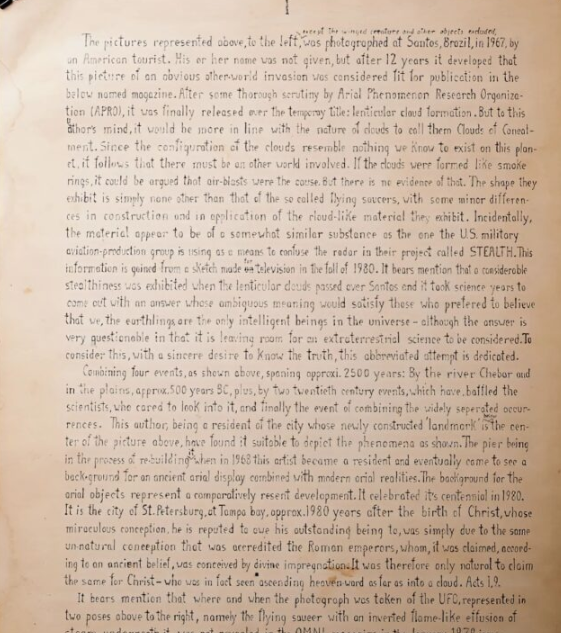 1
except the winged creature and other objects excluded,
The pictures represented above, to the left, was photographed at Santos, Brazil, in 1967, by
an American tourist. His or her name was not given, but after 12 years it developed that
this picture of an obvious other-world invasion was considered fit for publication in the
below named magazine. After some thorough scrutiny by Arial Phenomenon Research Organiza-
tion (APRO), it was finally released over the temporay title: lenticular cloud formation. But to this
athor's mind, it would be more in line with the nature of clouds to call them Clouds of Conceal-
ment. Since the configuration of the clouds resemble nothing we know to exist on this plan-
et, it follows that there must be an other world involved. If the clouds were formed like smoke
rings, it could be argued that air-blasts were the cause. But there is no evidence of that. The shape they
exhibit is simply none other than that of the so called flying saucers, with some minor differen-
ces in construction and in application of the cloud-like material they exhibit. Incidentally,
the material appear to be of a somewhat similar substance as the one the U.S. military
aviation-production group is using as a means to confuse the radar in their project called STEALTH. This
information is gained from a sketch made on television in the fall of 1980. It bears mention that a considerable
stealthiness was exhibited when the lenticular clouds passed over Santos and it took science years to
come out with an answer whose ambiguous meaning would satisfy those who preferred to believe
that we, the earthlings are the only intelligent beings in the universe - although the answer is
very questionable in that it is leaving room for an extraterrestrial science to be considered. To
consider this, with a sincere desire to know the truth, this abbreviated attempt is dedicated.
Combining four events, as shown above, spaning approxi. 2500 years: By the river Chebar and
in the plains, approx. 500 years BC, plus, by two twentieth century events, which have, baffled the
scientists, who cared to look into it, and finally the event of combining the widely seperated occur-
rences. This author, being a resident of the city whose newly constructed 'landmark' is the cen-
ter of the picture above, have found it suitable to depict the phenomena as shown. The pier being
in the process of re-building when in 1968 this artist became a resident and eventually came to see a
back-ground for an ancient arial display combined with modern arial realities. The background for the
arial objects represent a comparatively resent development. It celebrated its centennial in 1980.
It is the city of St. Petersburg, at Tampa bay, approx. 1980 years after the birth of Christ, whose
miraculous conception, he is reputed to owe his outstanding being to, was simply due to the same
un-natural conception that was accredited the Roman emperors, whom, it was claimed, accord-
ing to an ancient belief, was conceived by divine impregnation. It was therefore only natural to claim
the same for Christ - who was in fact seen ascending heaven ward as far as into a cloud. Acts 1,9.
It bears mention that where and when the photograph was taken of the UFO, represented in
two poses above to the right, namely the flying saucer with an inverted flame-like effusion of